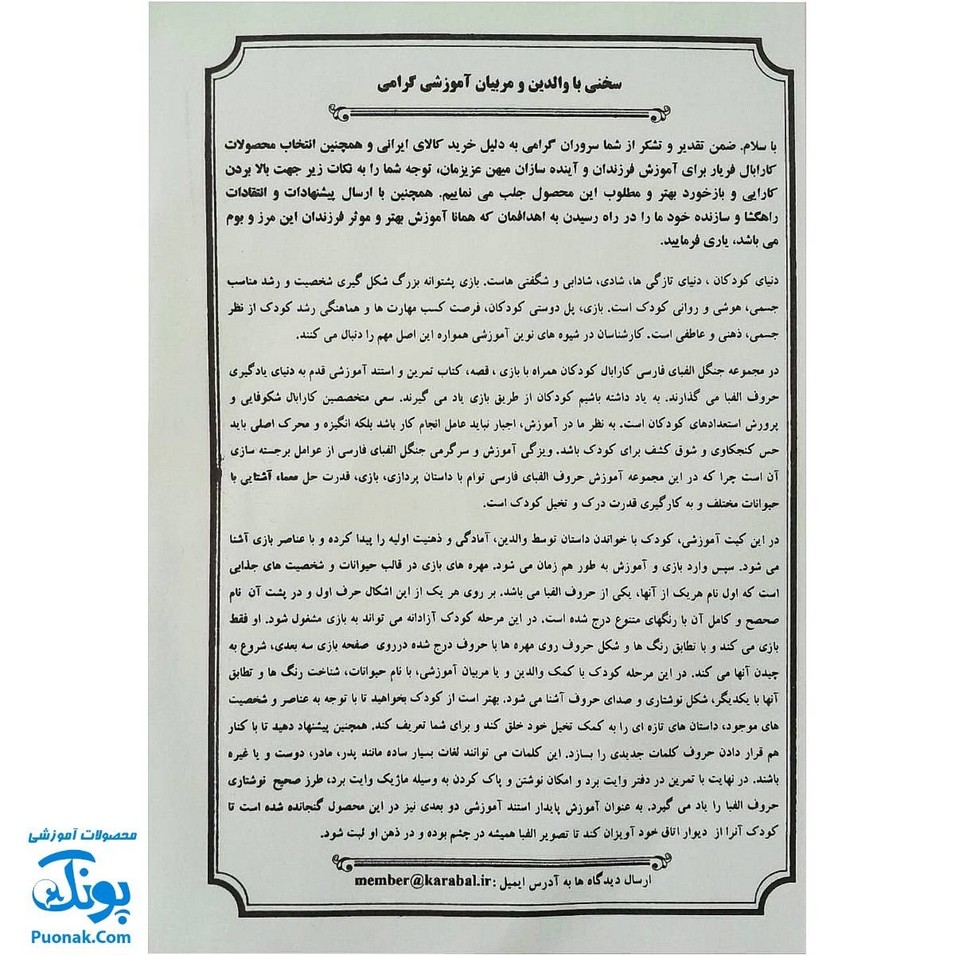 سخنی با والدین و مربیان آموزشی گرامی
با سلام. ضمن تقدیر و تشکر از شما سروران گرامی به دلیل خرید کالای ایرانی و همچنین انتخاب محصولات
کارابال فریار برای آموزش فرزندان و آینده سازان میهن عزیزمان، توجه شما را به نکات زیر جهت بالا بردن
کارایی و بازخورد بهتر و مطلوب این محصول جلب می نماییم. همچنین با ارسال پیشنهادات و انتقادات
راهگشا و سازنده خود ما را در راه رسیدن به اهدافمان که همانا آموزش بهتر و موثر فرزندان این مرز و بوم
می باشد، یاری فرمایید.
دنیای کودکان ، دنیای تازگی ها، شادی، شادابی و شگفتی هاست. بازی پشتوانه بزرگ شکل گیری شخصیت و رشد مناسب
جسمی، هوشی و روانی کودک است. بازی، پل دوستی کودکان، فرصت کسب مهارت ها و هماهنگی رشد کودک از نظر
جسمی، ذهنی و عاطفی است. کارشناسان در شیوه های نوین آموزشی همواره این اصل مهم را دنبال می کنند.
در مجموعه جنگل الفبای فارسی کارابال کودکان همراه با بازی ، قصه، کتاب تمرین و استند آموزشی قدم به دنیای یادگیری
حروف الفبا می گذارند. به یاد داشته باشیم کودکان از طریق بازی یاد می گیرند. سعی متخصصین کارابال شکوفایی و
پرورش استعدادهای کودکان است. به نظر ما در آموزش، اجبار نباید عامل انجام کار باشد بلکه انگیزه و محرک اصلی باید
حس کنجکاوی و شوق کشف برای کودک باشد. ویژگی آموزش و سرگرمی جنگل الفبای فارسی از عوامل برجسته سازی
آن است چرا که در این مجموعه آموزش حروف الفبای فارسی توام با داستان پردازی، بازی، قدرت حل معماء آشنایی با
حیوانات مختلف و به کارگیری قدرت درک و تخیل کودک است.
در این کیت آموزشی، کودک با خواندن داستان توسط والدین، آمادگی و ذهنیت اولیه را پیدا کرده و با عناصر بازی آشنا
می شود. سپس وارد بازی و آموزش به طور هم زمان می شود. مهره های بازی در قالب حیوانات و شخصیت های جذابی
است که اول نام هریک از آنها، یکی از حروف الفبا می باشد. بر روی هر یک از این اشکال حرف اول و در پشت آن نام
صحصح و کامل آن با رنگهای متنوع درج شده است. در این مرحله کودک آزادانه می تواند به بازی مشغول شود. او فقط
بازی می کند و با تطابق رنگ ها و شکل حروف روی مهره ها با حروف درج شده درروی صفحه بازی سه بعدی، شروع به
چیدن آنها می کند. در این مرحله کودک با کمک والدین و یا مربیان آموزشی، با نام حیوانات، شناخت رنگ ها و تطابق
آنها با یکدیگر، شکل نوشتاری و صدای حروف آشنا می شود. بهتر است از کودک بخواهید تا با توجه به عناصر و شخصیت
های موجود، داستان های تازه ای را به کمک تخیل خود خلق کند و برای شما تعریف کند. همچنین پیشنهاد دهید تا با کنار
هم قرار دادن حروف کلمات جدیدی را بسازد. این کلمات می توانند لغات بسیار ساده مانند پدر، مادر، دوست و یا غیره
باشند. در نهایت با تمرین در دفتر وایت برد و امکان نوشتن و پاک کردن به وسیله ماژیک وایت برد، طرز صحیح نوشتاری
حروف الفبا را یاد می گیرد. به عنوان آموزش پایدار استند آموزشی دو بعدی نیز در این محصول گنجانده شده است تا
کودک آنرا از دیوار اتاق خود آویزان کند تا تصویر الفبا همیشه در چشم بوده و در ذهن او ثبت شود.
ارسال دیدگاه ها به آدرس ایمیل :member@karabal.ir
محصولات آموزشی
پونک
Puonak.Com